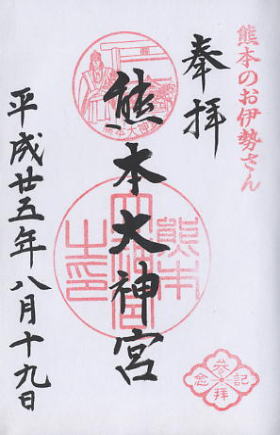 熊本のお伊勢さん
奉拝
熊本大神宮
平成廿五年八月十九日
熊本大神宮
熊本
大神宮
之印
参拝
記念